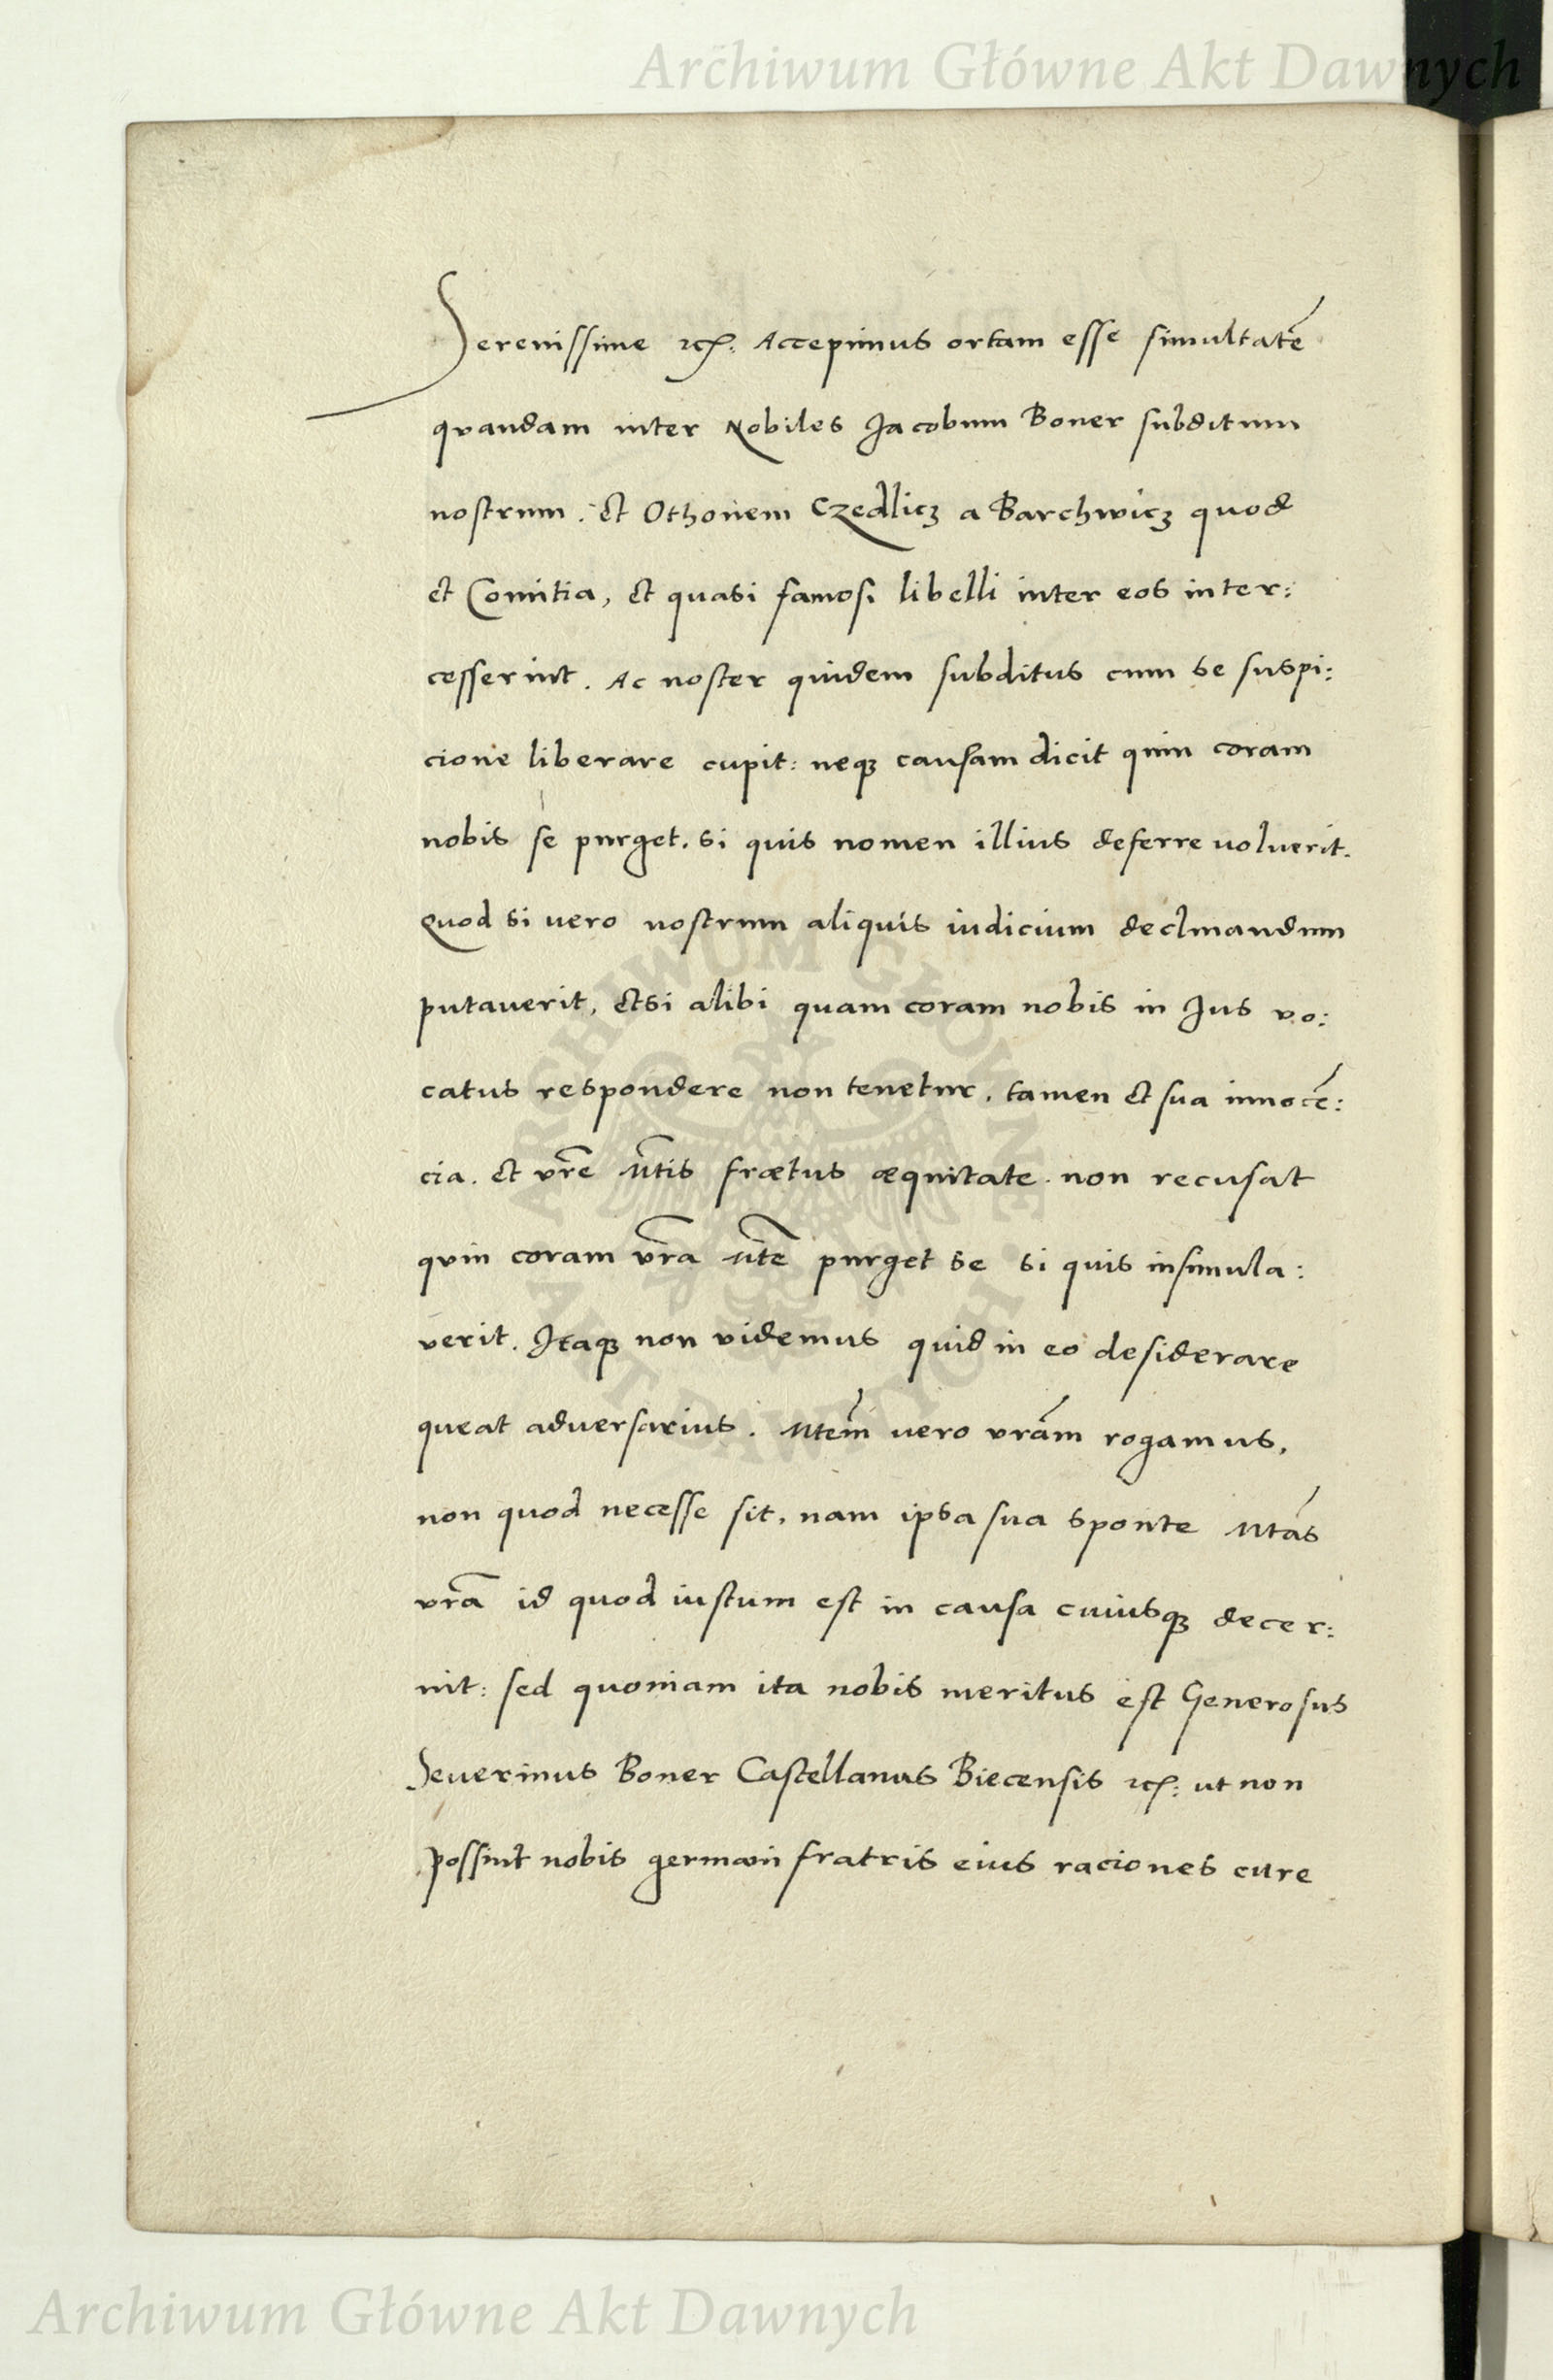 Archiwum Główne Akt Dawnych
Serenissime etc. Accepimus ortam esse simultatē
quandam inter Nobiles Jacobum Boner subditum
nostrum. Et Othonem Czedlicz a Barchwicz quod
et Comitia, et quasi famosi libelli inter eos inter:
cesserint. Ac noster quidem subditus cum se suspi:
cione liberare cupit: neqꝫ causam dicit quin coram
nobis se purget. si quis nomen illius deferre voluerit.
Quod si vero nostrum aliquis iudicium declinandum
putaverit, etsi alibi quam coram nobis in Jus vo:
catus respondere non tenetur. tamen et sua innocē:
cia. et vr̄e Mt̄is frætus æquitate. non recusat
quin coram vr̄a Mt̄e purget se si quis insimula:
verit. Itaqꝫ non videmus quid in eo desiderare
queat adversarius. Mtem̄ vero vrām rogamus,
non quod necesse sit, nam ipsa sua sponte Mtās
vr̄a id quod iustum est in causa cuiusqꝫ decer:
nit: sed quoniam ita nobis meritus est Generosus
Severinus Boner Castellanus Biecensis etc. ut non
possint nobis germani fratris eius raciones cure
ARCHIWUM GŁÓWNE AKT DAWNYCH
Archiwum Główne Akt Dawnych